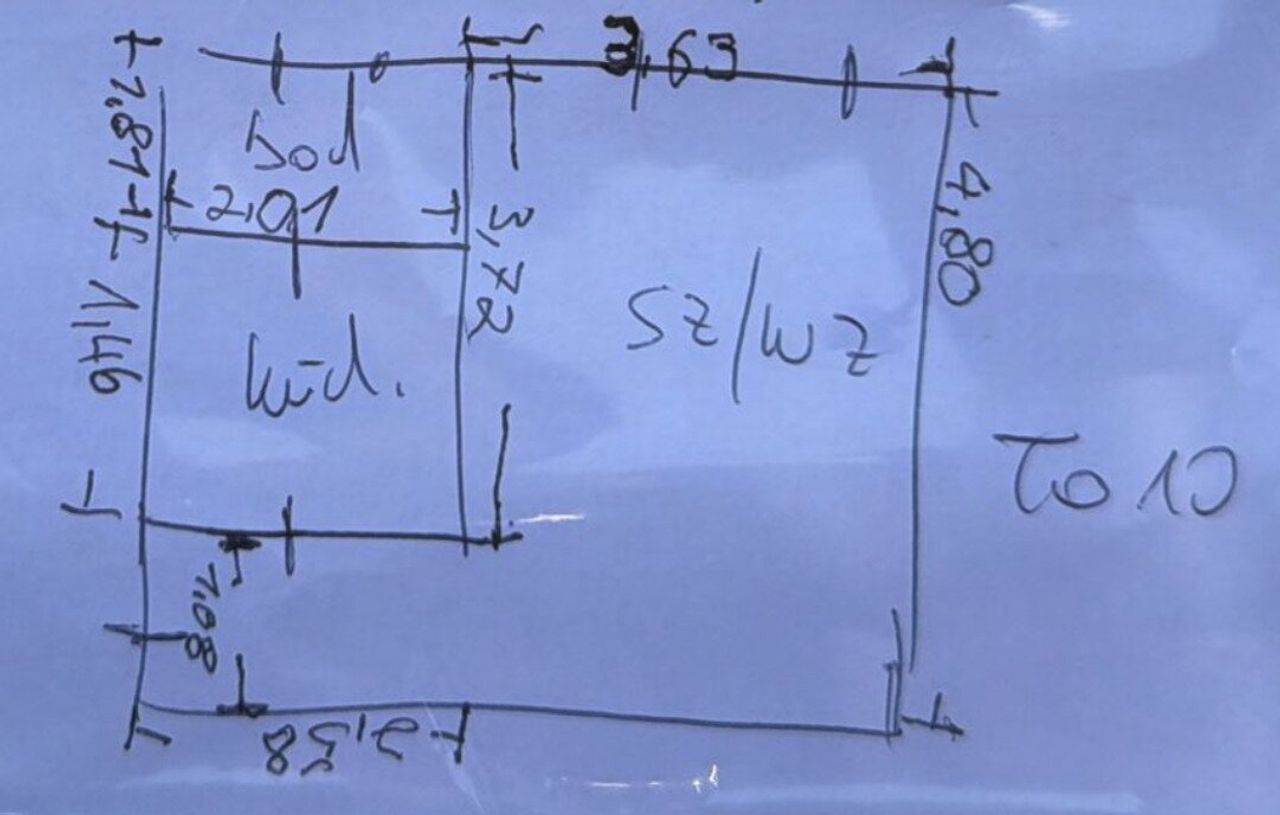 3,63
1.81
Bad
2.01
3,72
4,80
1,46
SZ/WZ
Küch.
To 10
1.08
2,58